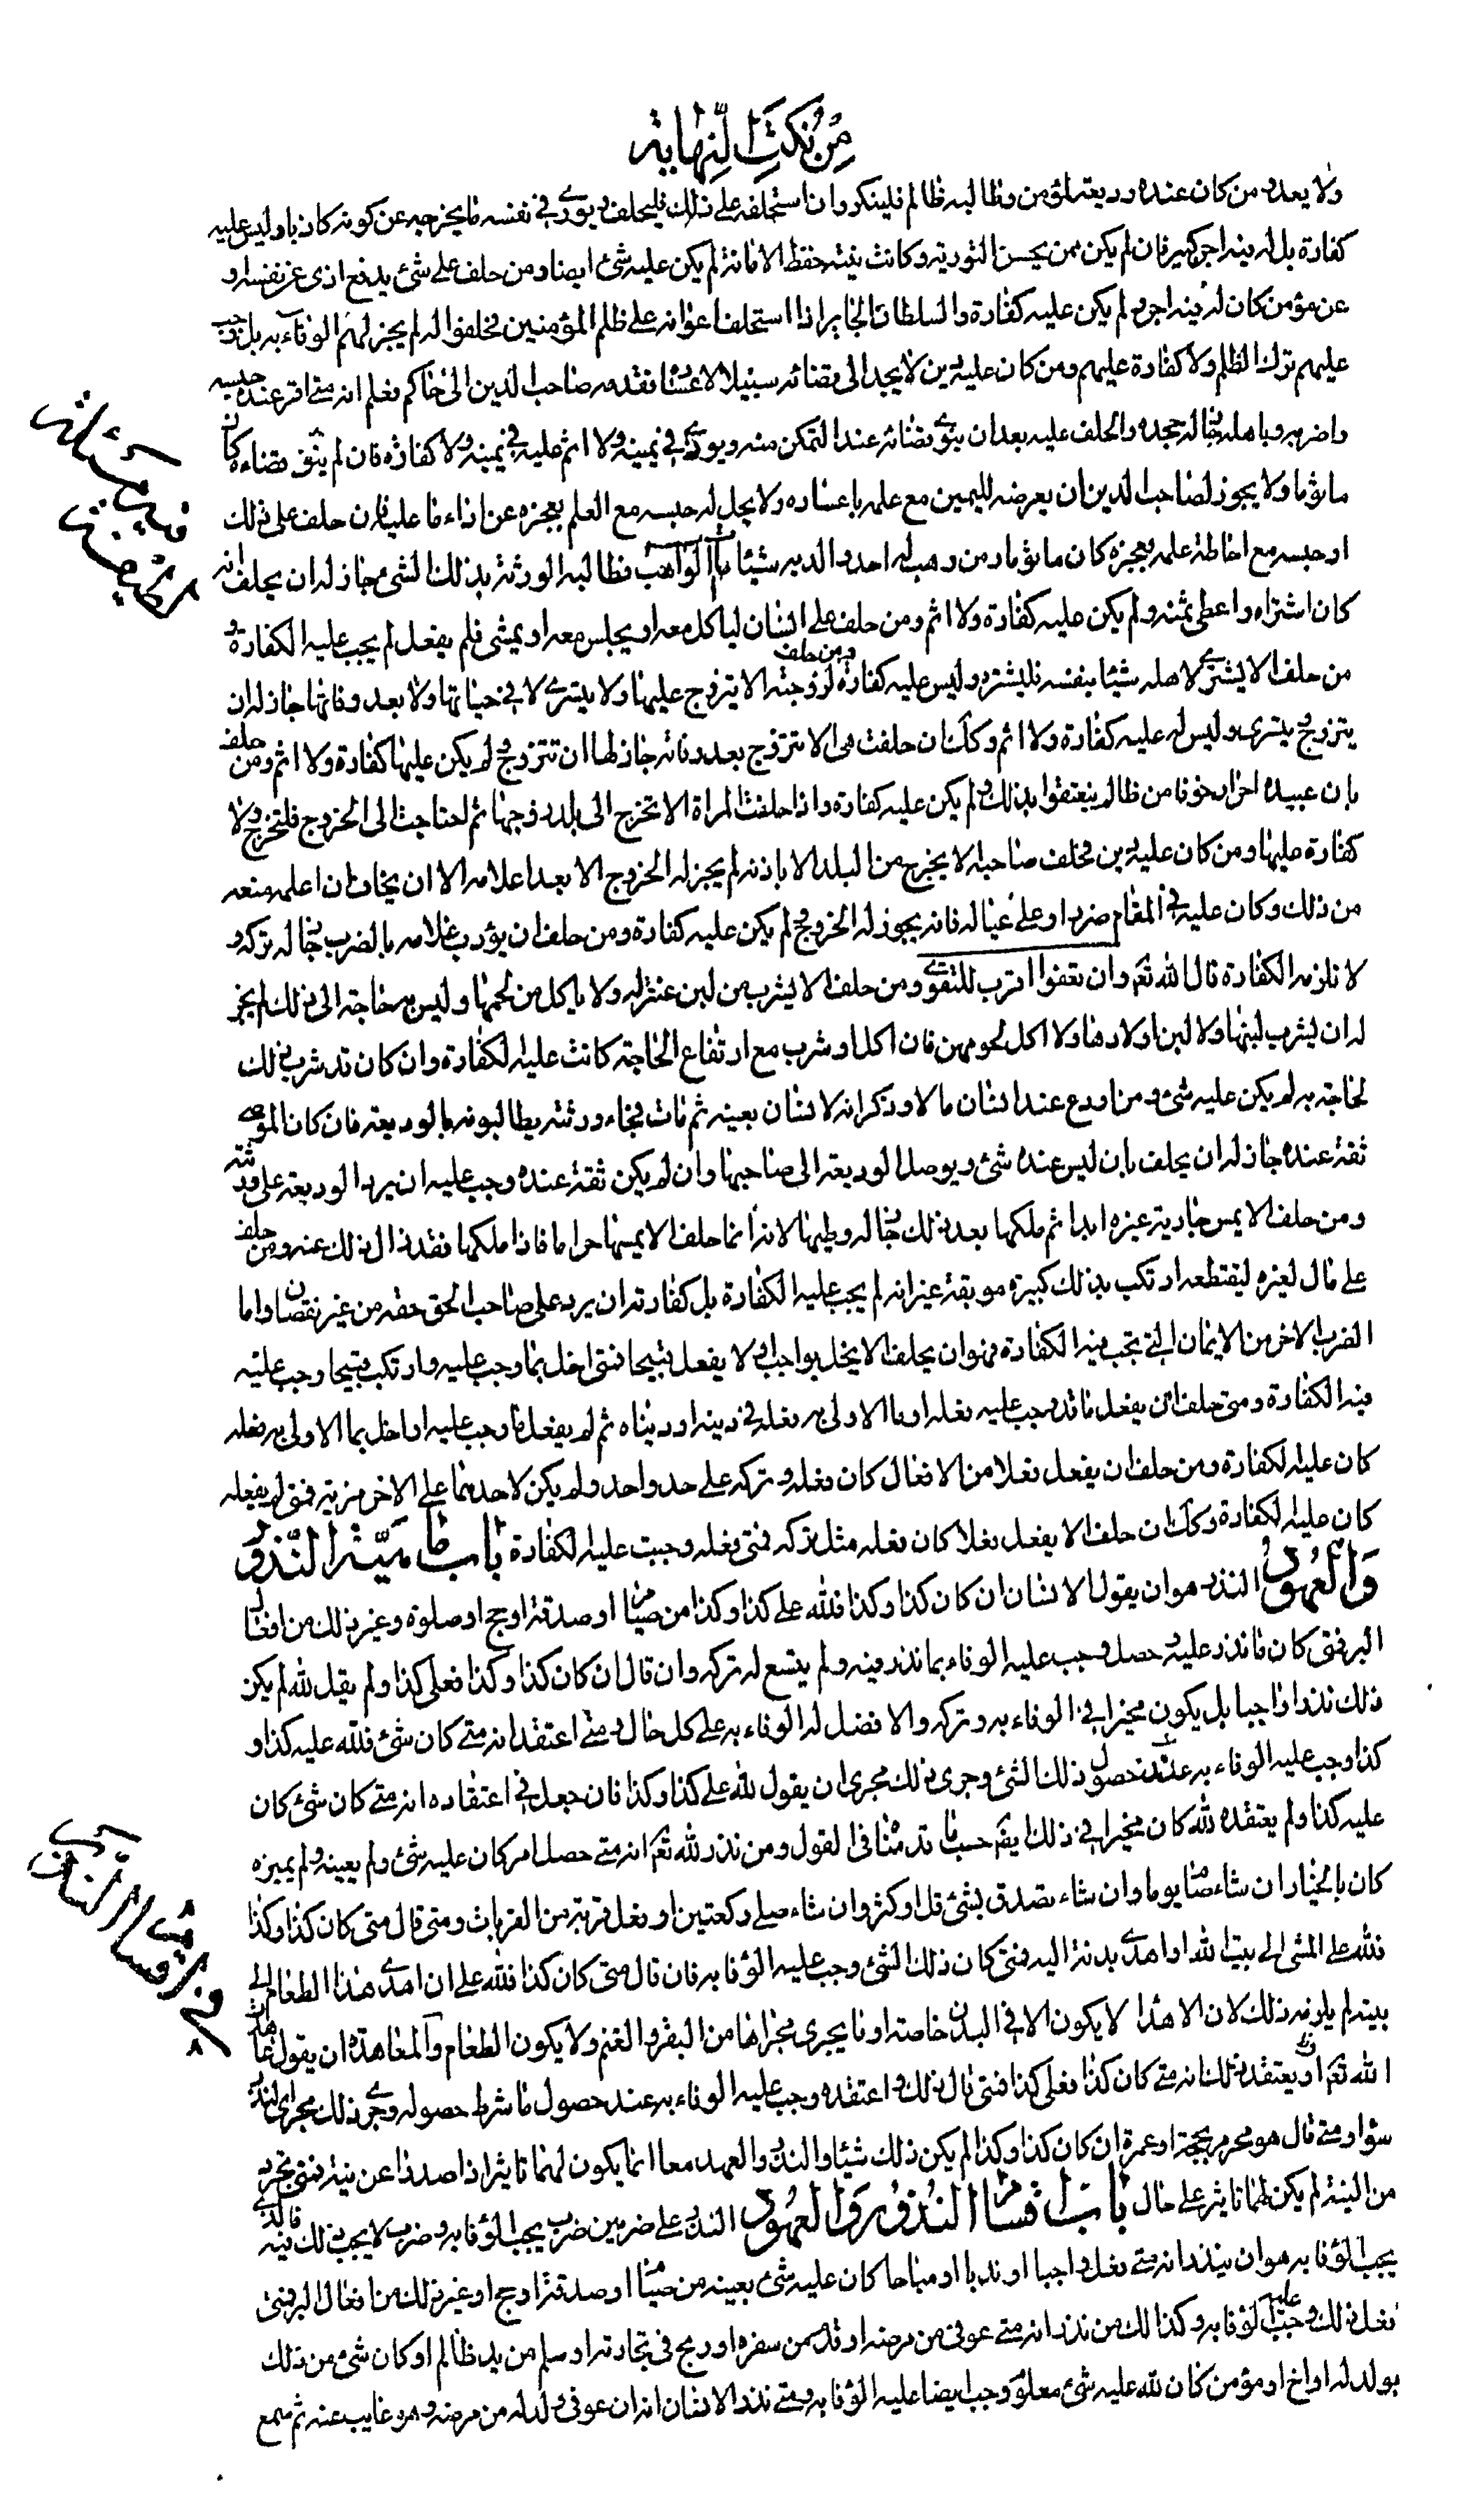 من نكت النهاية
ولا يعد ومن كان عنده وديعة لمؤمن وطالبه ظالم فلينكر وان استحلفه على ذلك فليحلف ويورى في نفسه ما يخرجه عن كونه كاذبا وليس عليه
كفارة بل له فيه اجر كبير فان لم يكن ممن يحسن التورية وكانت نيته حفظ الامانة لم يكن عليه شئ ايضا ومن حلف على شئ يدفع اذى عن نفسه او
عن مؤمن كان له فيه اجر ولم يكن عليه كفارة والسلطان الجاير اذا استحلف اعوانه على ظلم المؤمنين فحلفوا له لم يجز لهم الوفاء به بل وجب
عليهم ترك الظلم ولا كفارة عليهم ومن كان عليه دين لا يجد الى قضائه سبيلا لاعساره فقدمه صاحب الدين الى حاكم فعلم انه متى اقر عنده حبسه
واضر به وباهله جاز له جحده والحلف عليه بعد ان ينوى قضائه عند التمكن منه ويورى في يمينه ولا اثم عليه في يمينه ولا كفارة فان لم ينو قضاءه كان
ماثوما ولا يجوز لصاحب الدين ان يعرضه لليمين مع علمه باعساره ولا يحل له حبسه مع العلم بعجزه عن اداء ما عليه فان حلف على ذلك
او حبسه مع احاطة علمه بعجزه كان ماثوما ومن وهب له احد والديه شيئا ثم مات الواهب فطالبه الورثة بذلك الشئ جاز له ان يحلف انه
كان اشتراه واعطى ثمنه ولم يكن عليه كفارة ولا اثم ومن حلف على انسان لياكل معه او يجلس معه او يمشى فلم يفعل لم يجب عليه الكفارة و
من حلف الا يشترى لاهله شيئا بنفسه فليشتره وليس عليه كفارة ومن حلف لزوجته الا يتزوج عليها ولا يتسرى لا في حياتها ولا بعد وفاتها جاز له ان
يتزوج ويتسرى وليس له عليه كفارة ولا اثم وكك ان حلفت هى الا تتزوج بعد وفاته جاز لها ان تتزوج ولم يكن عليها كفارة ولا اثم ومن حلف
بان عبيده احرار خوفا من ظالم لم ينعتقوا بذلك ولم يكن عليه كفارة واذا حلفت المراة الا تخرج الى بلد زوجها ثم احتاجت الى الخروج فلتخرج ولا
كفارة عليها ومن كان عليه دين فحلف صاحبه الا يخرج من البلد الا باذنه لم يجز له الخروج الا بعد اعلامه الا ان يخاف ان اعلمه منعه
من ذلك وكان عليه في المقام ضرر او على عياله فانه يجوز له الخروج ولم يكن عليه كفارة ومن حلف ان يؤدب غلامه بالضرب جاز له تركه و
لا تلزمه الكفارة قال الله تعم وان تعفوا اقرب للتقوى ومن حلف الا يشرب من لبن عنز له ولا ياكل من لحمها وليس به حاجة الى ذلك لم يجز
له ان يشرب لبنها ولا لبن اولادها ولا اكل لحومهن فان اكل او شرب مع ارتفاع الحاجة كانت عليه الكفارة وان كان قد شرب ذلك
لحاجة به لم يكن عليه شئ ومن اودع عند انسان مالا وذكر انه لانسان بعينه ثم مات فجاء ورثته يطالبونه بالوديعة فان كان الموصى
ثقة عنده جاز له ان يحلف بان ليس عنده شئ ويوصل الوديعة الى صاحبها وان لم يكن ثقة عنده وجب عليه ان يرد الوديعة على ورثته
ومن حلف الا يمس جارية غيره ابدا ثم ملكها بعد ذلك جاز له وطيها لانه انما حلف الا يمسها حراما فاذا ملكها فقد زال ذلك عنه ومن حلف
على مال لغيره ليقتطعه ارتكب بذلك كبيرة موبقة غير انه لم يجب عليه الكفارة بل كفارته ان يرد على صاحب الحق حقه من غير نقصان واما
الضرب الاخر من الايمان التى تجب فيه الكفارة فهو ان يحلف الا يخل بواجب او لا يفعل قبيحا فمتى اخل بما وجب عليه او ارتكب قبيحا وجب عليه
فيه الكفارة ومتى حلف ان يفعل ما قد وجب عليه فعله او ما الاولى به فعله في دينه او دنياه ثم لم يفعل ما وجب عليه او اخل بما الاولى به فعله
كان عليه الكفارة ومن حلف ان يفعل فعلا من الافعال كان فعله وتركه على حد واحد ولم يكن لاحدهما على الاخر مزية فمتى لم يفعله
كان عليه الكفارة وكك ان حلف الا يفعل فعلا كان فعله مثل تركه فمتى فعله وجبت عليه الكفارة باب ماهية النذور
والعهود النذر هو ان يقول الانسان ان كان كذا وكذا فلله على كذا وكذا من صيام او صدقة او حج او صلوة وغير ذلك من افعال
البر فمتى كان ما نذر عليه وحصل وجب عليه الوفاء بما نذر فيه ولم يتسع له تركه وان قال ان كان كذا وكذا فعلى كذا ولم يقل لله لم يكن
ذلك نذرا واجبا بل يكون مخيرا في الوفاء به وتركه والافضل له الوفاء به على كل حال ومتى اعتقد انه متى كان شئ فلله عليه كذا و
كذا وجب عليه الوفاء به عند حصول ذلك الشئ وجرى ذلك مجرى ان يقول لله على كذا وكذا فان جعل في اعتقاده انه متى كان شئ كان
عليه كذا ولم يعتقده لله كان مخيرا في ذلك يقم حسب ما قدمناه في القول ومن نذر لله تعم انه متى حصل امر كان عليه شئ ولم يعينه ولم يميزه
كان بالخيار ان شاء صام يوما وان شاء تصدق بشئ قل او كثر وان شاء صلى ركعتين او فعل قربة من القربات ومتى قال متى كان كذا وكذا
فلله على المشى الى بيت الله او اهدى بدنة اليه فمتى كان ذلك الشئ وجب عليه الوفا به فان قال متى كان كذا فلله على ان اهدى هذا الطعام الى
بيته لم يلزمه ذلك لان الاهداء لا يكون الا في البدن خاصة او ما يجرى مجراها من البقر والغنم ولا يكون الطعام والمعاهدة ان يقول عاهدت
الله تعم او يعتقد ذلك انه متى كان كذا فعلى كذا فمتى قال ذلك او اعتقده وجب عليه الوفاء به عند حصول ما شرط حصوله وجرى ذلك مجرى النذر
سواء ومتى قال هو محرم بحجة او عمرة ان كان كذا وكذا لم يكن ذلك شيئا والنذر والعهد معا انما يكون لهما تاثير اذا صدرا عن نية فمتى تجرد
من النية لم يكن لهما تاثير على حال باب اقسام النذور والعهود النذر على ضربين ضرب يجب الوفا به وضرب لا يجب ذلك فيه فالذى
يجب الوفا به هو ان ينذر انه متى فعل واجبا او ندبا او مباحا كان عليه شئ بعينه من صيام او صدقة او حج او غير ذلك من افعال البر فمتى
فعل ذلك وجب عليه الوفا به وكذالك من نذر انه متى عوفى من مرضه او قدم من سفره او ربح في تجارته او سلم من يد ظالم او كان شئ من ذلك
بولد له او اخ او مؤمن كان لله عليه شئ معلوم وجب ايضا عليه الوفا به ومتى نذر الانسان انه ان عوفى ولد له من مرضه وهو غايب عنه ثم سمع
في اقسام النذر